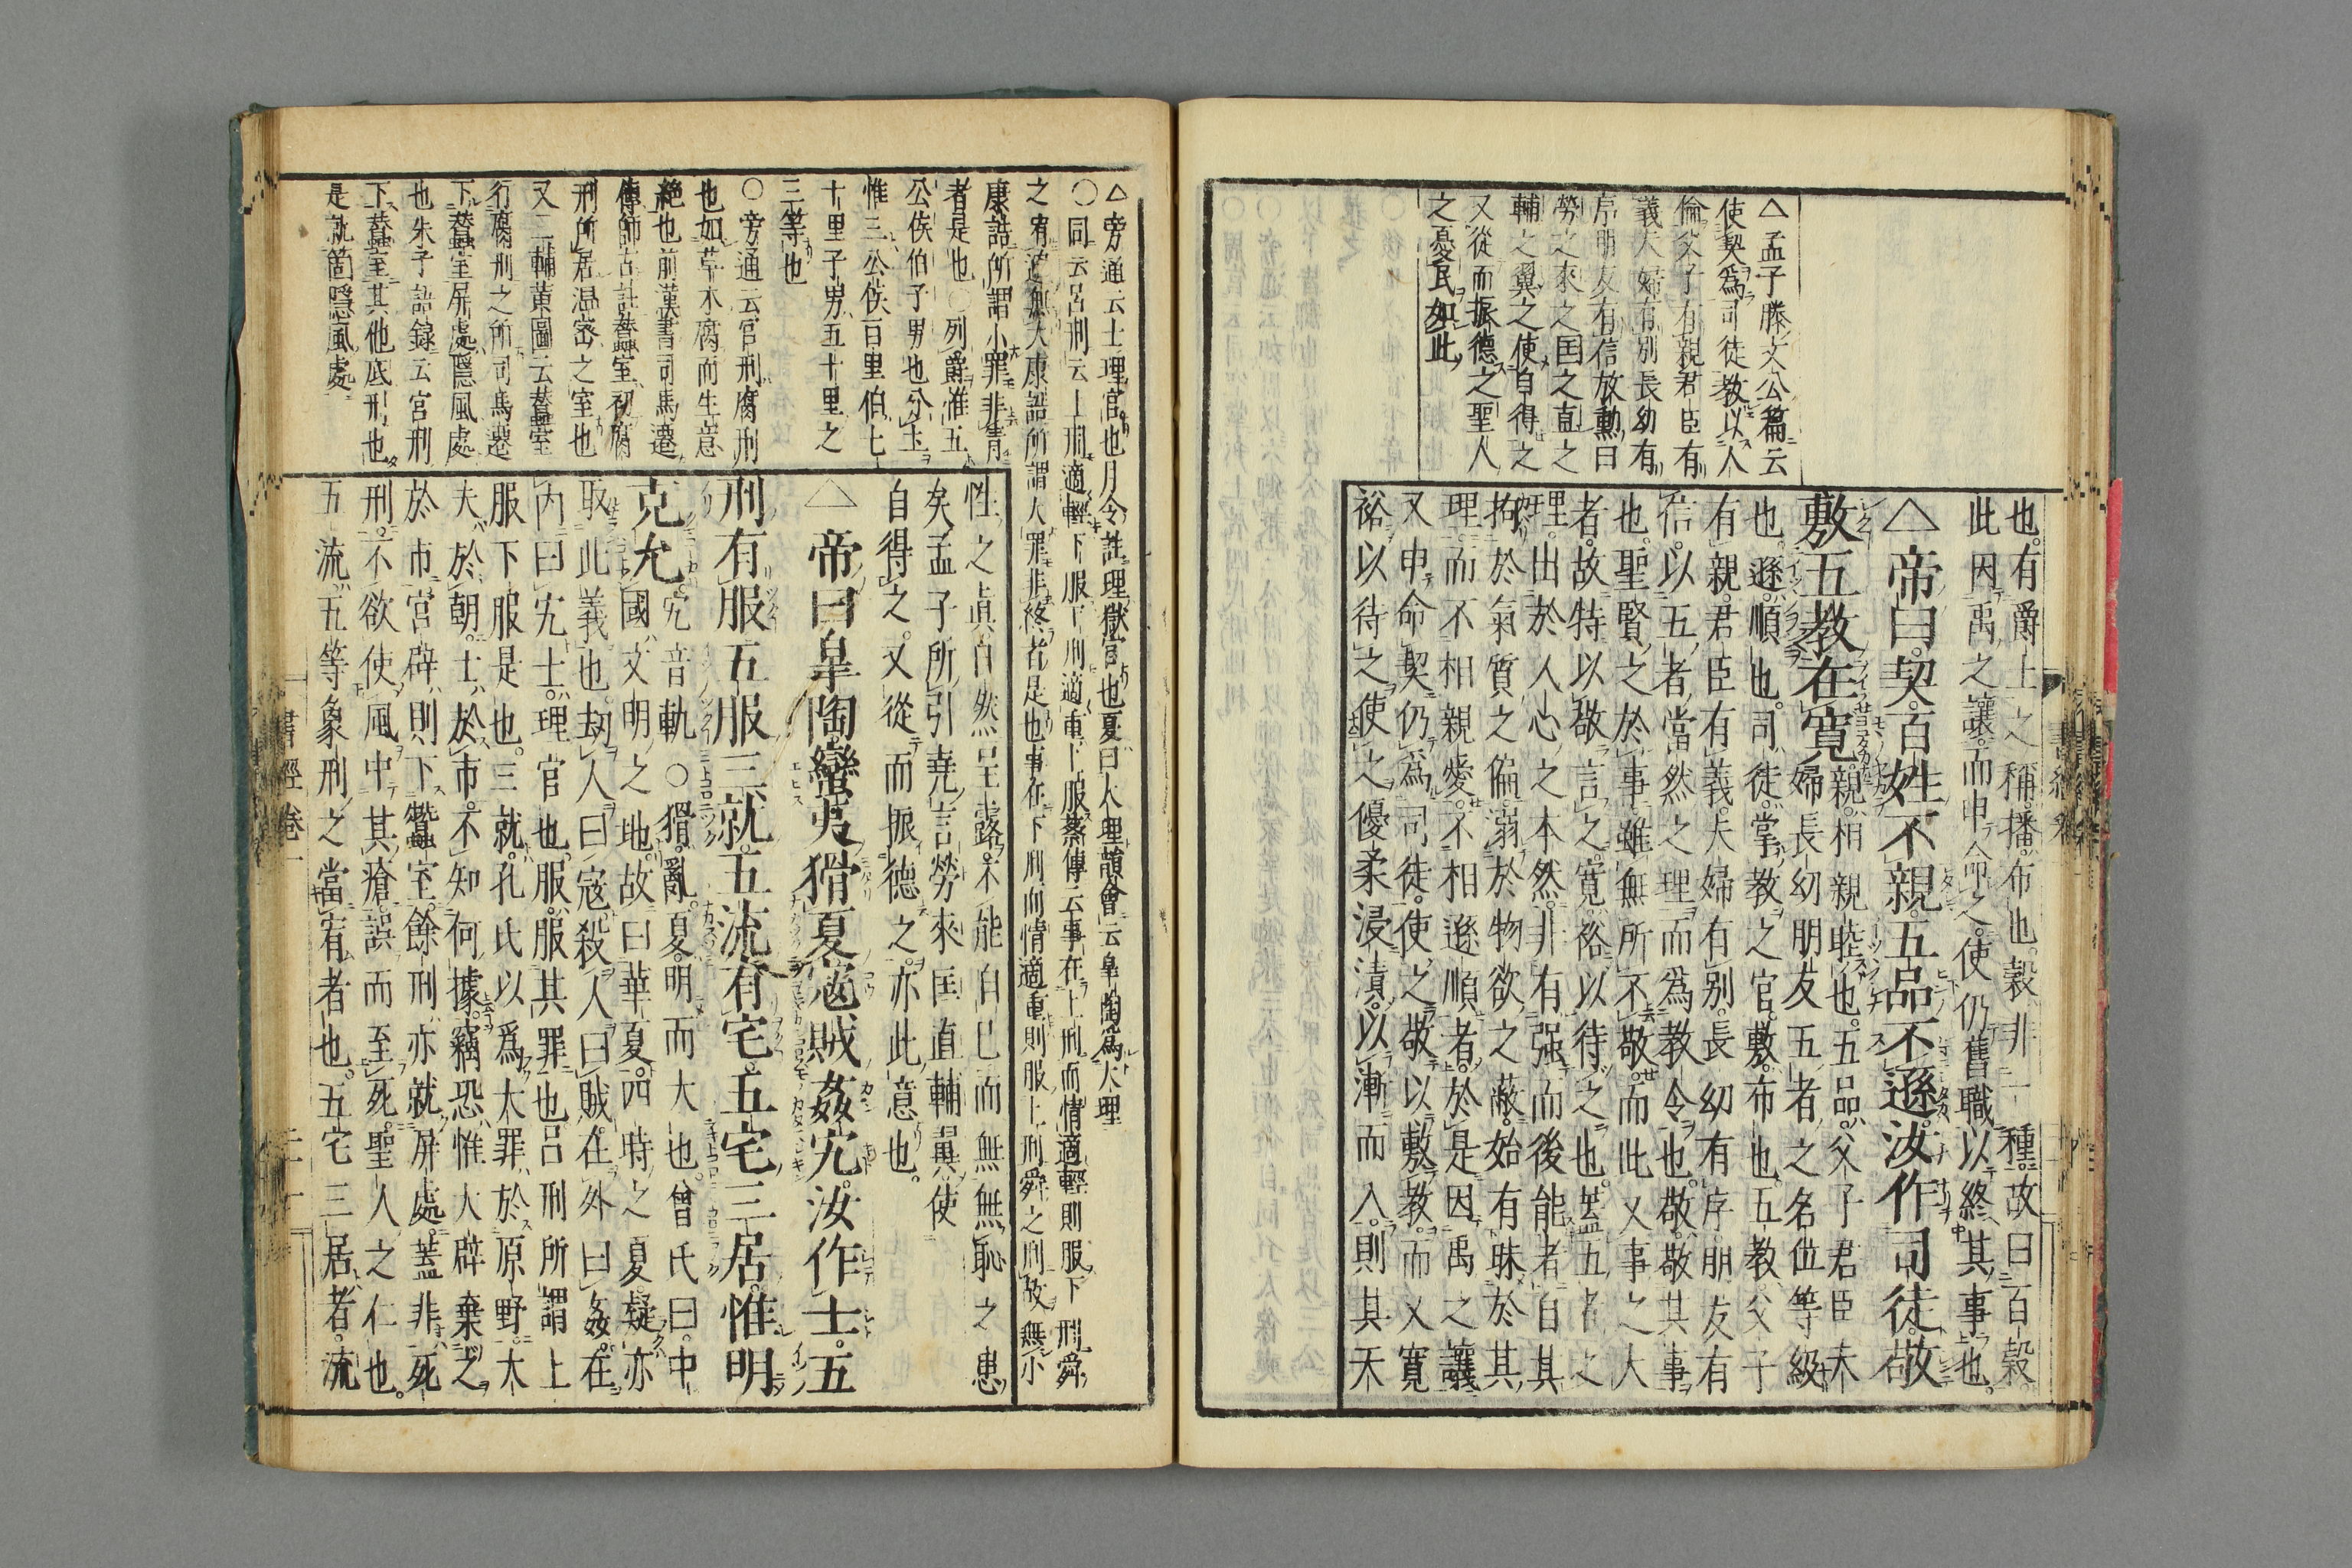 也有爵土之稱播布也穀非一種故曰百穀
此因禹之讓而申命之使仍舊職以終其事也
△帝曰契百姓不親五品不遜汝作司徒敬
敷五教在寬親相親睦也五品父子君臣夫
婦長幼朋友五者之名位等級
也遜順也司徒掌教之官敷布也五教父子
有親君臣有義夫婦有別長幼有序朋友有
信以五者當然之理而爲教令也敬敬其事
也聖賢之於事雖無所不敬而此又事之大
者故特以敬言之寬裕以待之也蓋五者之
理出於人心之本然非有强而後能者自其
拘於氣質之偏溺於物欲之蔽始有昧於其
理而不相親愛不相遜順者於是因禹之讓
又申命契仍爲司徒使之敬以敷教而又寬
裕以待之使之優柔浸漬以漸而入則其天
△孟子滕文公篇云
使契爲司徒教以人
倫父子有親君臣有
義夫婦有別長幼有
序朋友有信放勳曰
勞之來之匡之直之
輔之翼之使自得之
又從而振德之聖人
之憂民如此
△旁通云士理官也月令註理獄官也夏曰大理韻會云皐陶爲大理
○同云呂刑云上刑適輕下服下刑適重上服蔡傳云事在上刑而情適輕則服下刑舜
之宥過無大康誥所謂大罪非終者是也事在下刑而情適重則服上刑舜之刑故無小
康誥所謂小罪非眚
者是也○列爵惟五
公侯伯子男也分土
惟三公侯百里伯七
十里子男五十里之
三等也
○旁通云宮刑腐刑
也如草木腐而生意
絶也前漢書司馬遷
傳師古註蠶室初腐
刑所居温密之室也
又三輔黄圖云蠶室
行腐刑之所司馬遷
下蠶室屏處隱風處
也朱子語錄云宮刑
下蠶室其他底刑也
是就箇隱風處
性之眞自然呈露不能自已而無無恥之患
矣孟子所引堯言勞來匡直輔翼使
自得之又從而振德之亦此意也
△帝曰皐陶蠻夷猾夏寇賊姦宄汝作士五
刑有服五服三就五流有宅五宅三居惟明
克允宄音軌○猾亂夏明而大也曾氏曰中
國文明之地故曰華夏四時之夏疑亦
取此義也劫人曰寇殺人曰賊在外曰姦在
内曰宄士理官也服服其罪也呂刑所謂上
服下服是也三就孔氏以爲大罪於原野大
夫於朝士於市不知何據竊恐惟大辟棄之
於市宮辟則下蠶室餘刑亦就屏處蓋非死
刑不欲使風中其瘡誤而至死聖人之仁也
五流五等象刑之當宥者也五宅三居者流
書經卷一